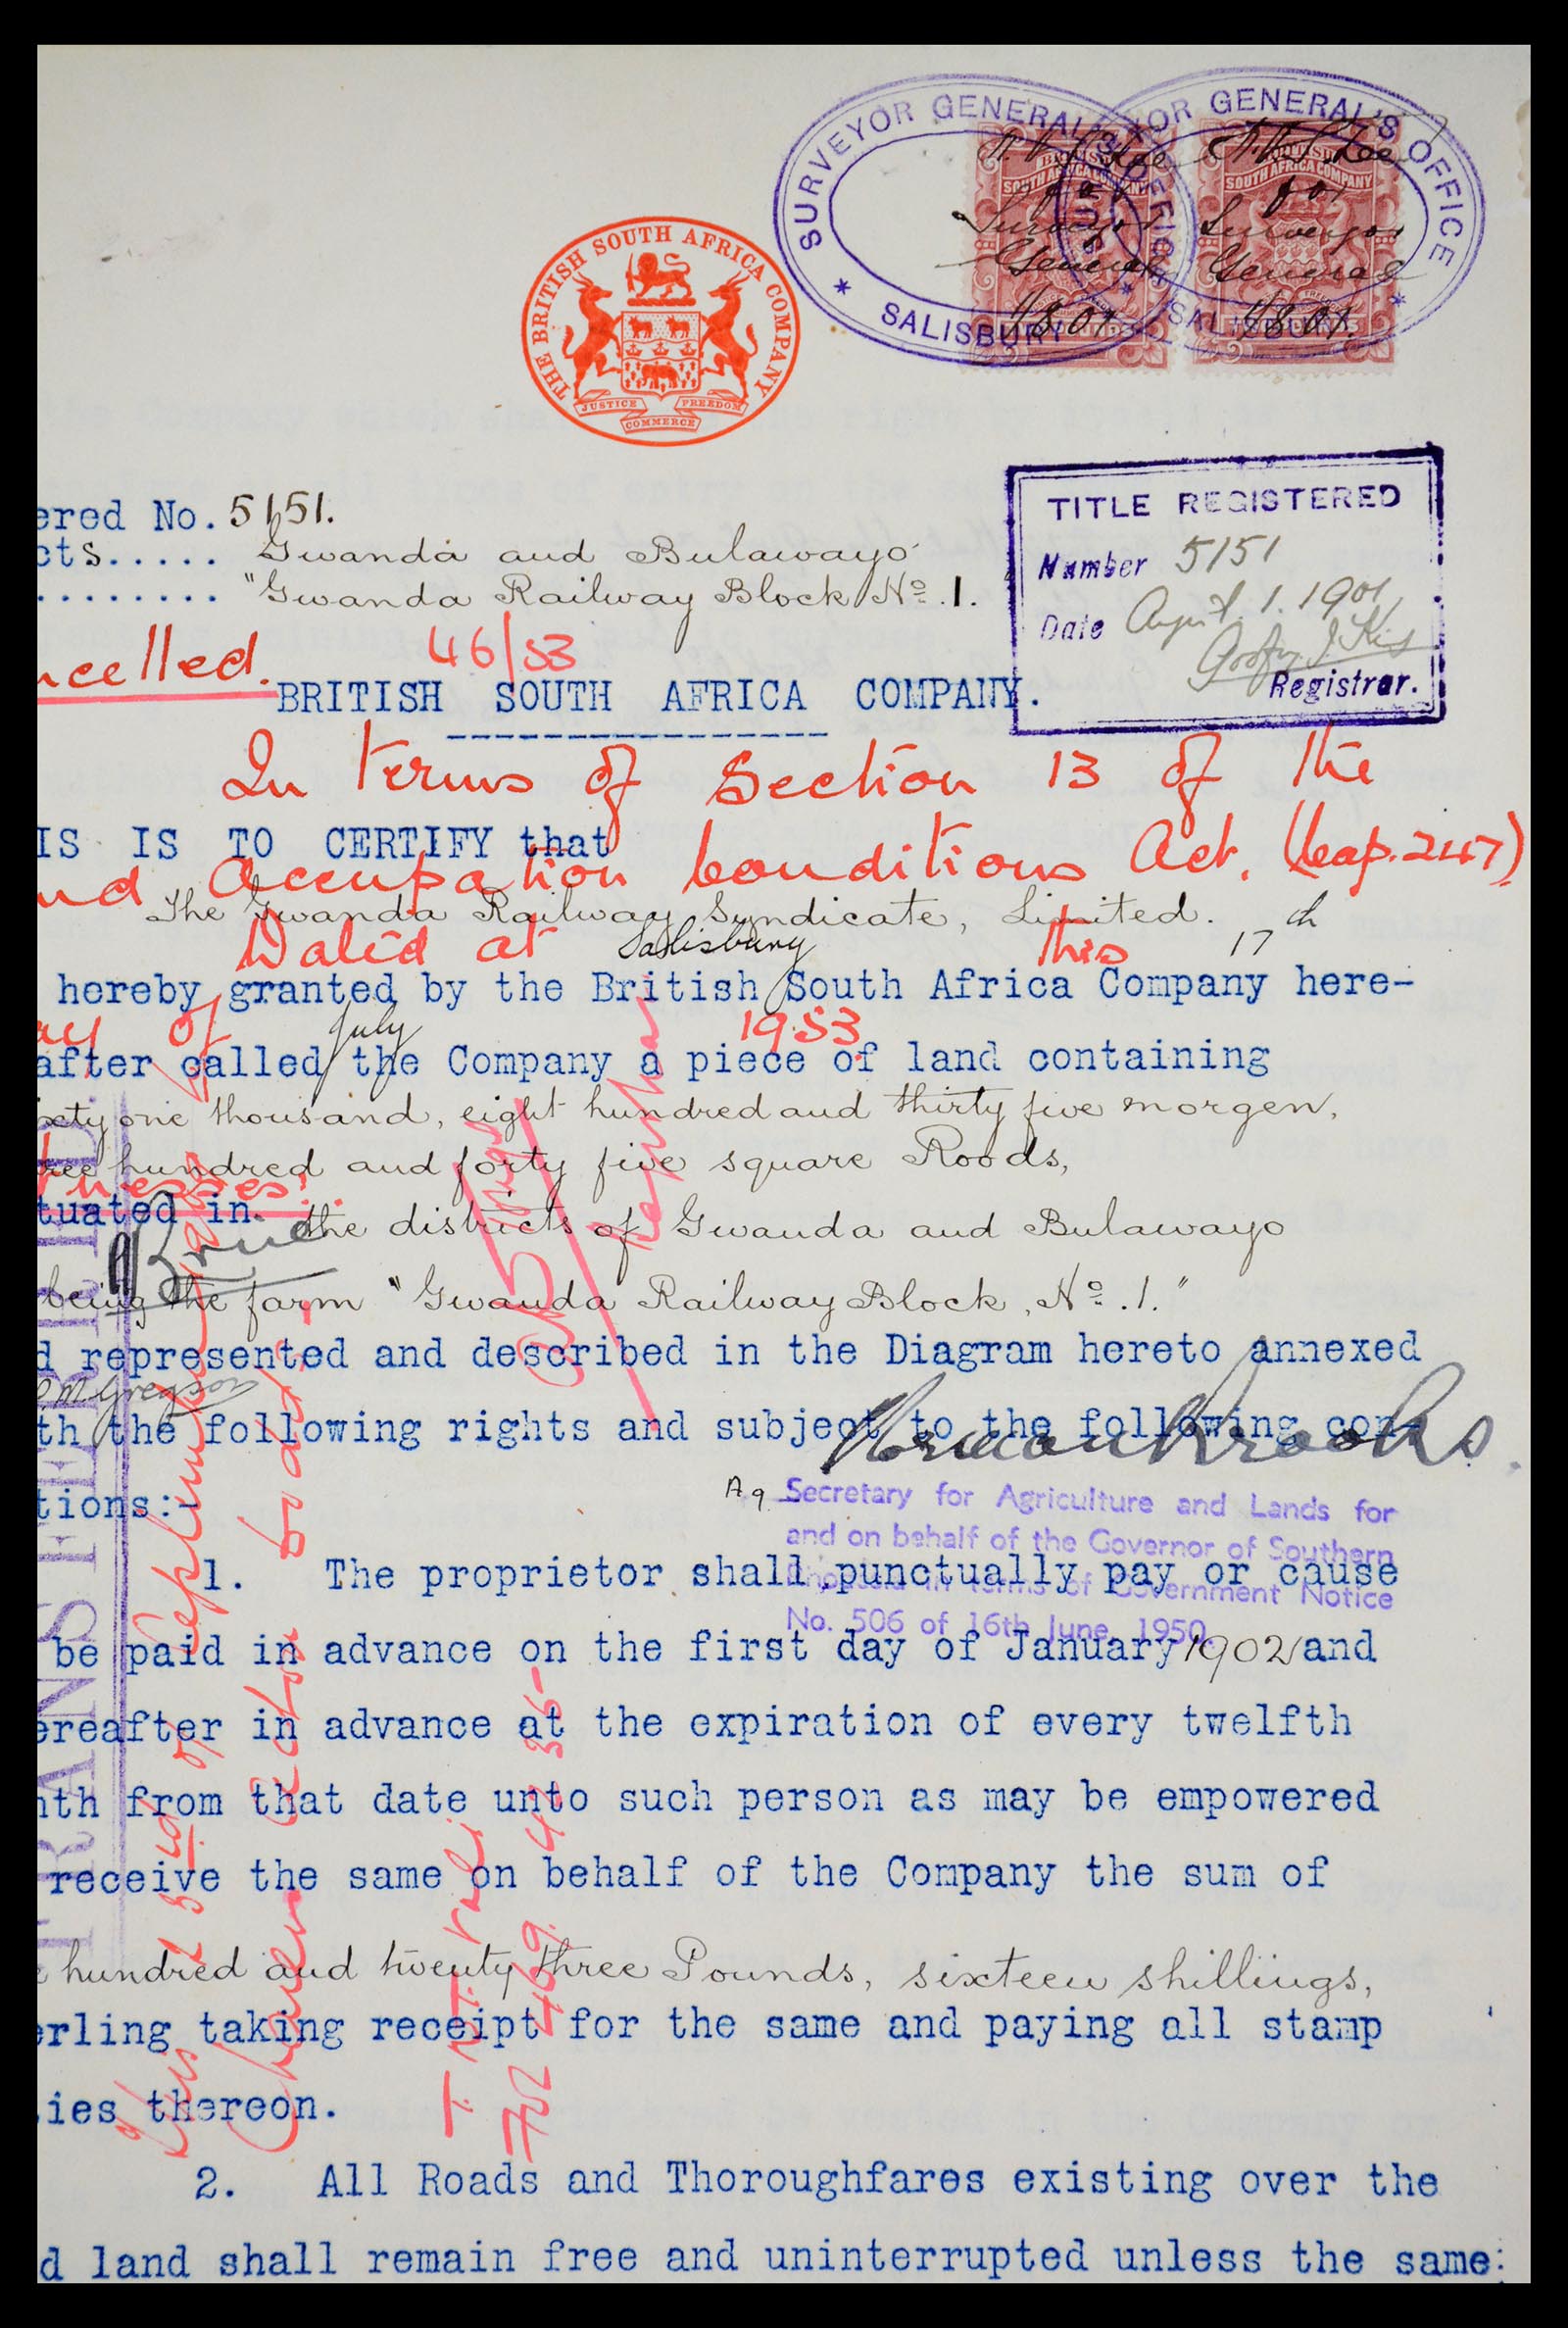 SURVEYOR GENERAL'S OFFICE
* SALISBURY *
OR GENERAL'S OFFICE
SALISBURY *
BRITISH
SOUTH AFRICA COMPANY
SOUTH AFRICA COMPANY
for
Surveyor
General
for
Surveyor
General
THE BRITISH SOUTH AFRICA COMPANY
JUSTICE
FREEDOM
COMMERCE
TITLE REGISTERED
Number 5151
Date April 1. 1901
Registrar.
ered No. 5151.
cts..... Gwanda and Bulawayo
......... "Gwanda Railway Block No. 1.
ncelled.
46/53
BRITISH SOUTH AFRICA COMPANY.
In terms of Section 13 of the
IS IS TO CERTIFY that
nd Occupation Conditions Act. (Cap. 247)
The Gwanda Railway Syndicate, Limited.
Dated at Salisbury this 17th
hereby granted by the British South Africa Company here-
ay of July 1953.
after called the Company a piece of land containing
xty one thousand, eight hundred and thirty five morgen,
ree hundred and forty five square Roods,
tnesses:
tuated in the districts of Gwanda and Bulawayo
being the farm "Gwanda Railway Block, No. 1."
d represented and described in the Diagram hereto annexed
th the following rights and subject to the following con-
tions:-
Ag Secretary for Agriculture and Lands for
and on behalf of the Governor of Southern
in terms of Government Notice
No. 506 of 16th June, 1950.
1. The proprietor shall punctually pay or cause
be paid in advance on the first day of January 1902 and
ereafter in advance at the expiration of every twelfth
nth from that date unto such person as may be empowered
receive the same on behalf of the Company the sum of
hundred and twenty three Pounds, sixteen shillings,
erling taking receipt for the same and paying all stamp
ies thereon.
2. All Roads and Thoroughfares existing over the
d land shall remain free and uninterrupted unless the same